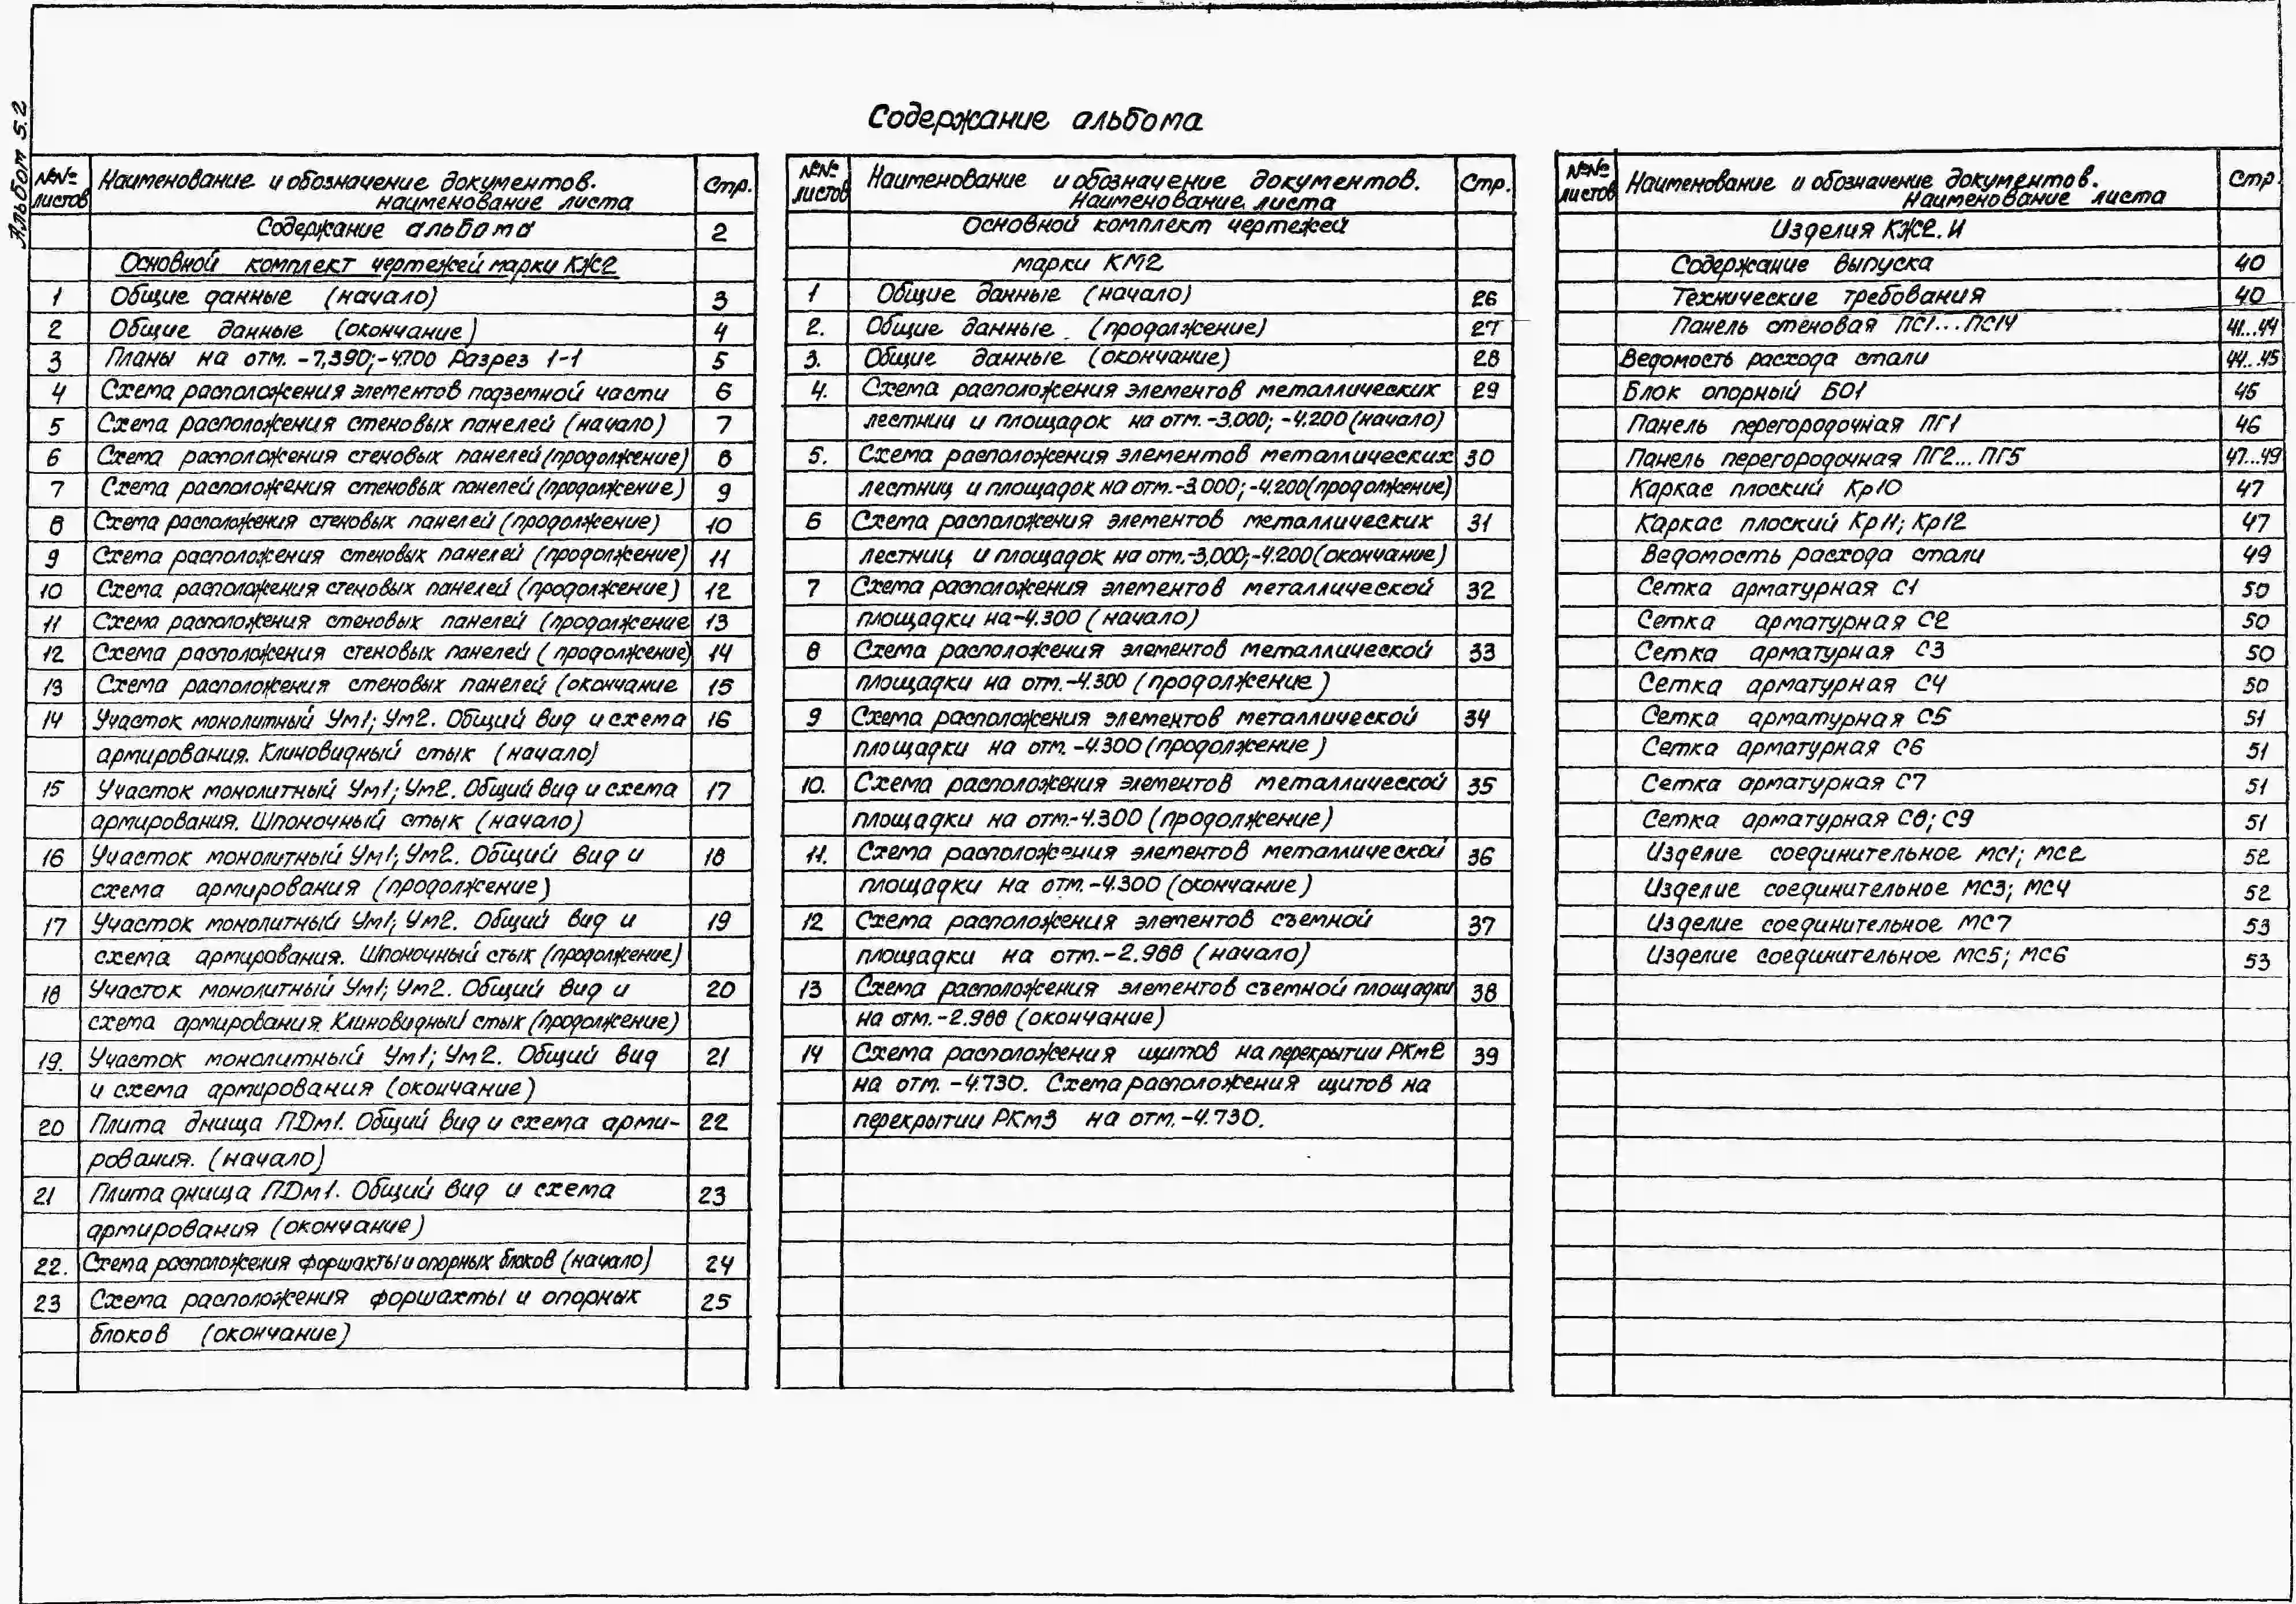 Альбом 5.2
Содержание альбома
№№ листов Наименование и обозначение документов. наименование листа Стр.
Содержание альбома 2
Основной комплект чертежей марки КЖ2
1 Общие данные (начало) 3
2 Общие данные (окончание) 4
3 Планы на отм. -7,390;-4.700 Разрез 1-1 5
4 Схема расположения элементов подземной части 6
5 Схема расположения стеновых панелей (начало) 7
6 Схема расположения стеновых панелей (продолжение) 8
7 Схема расположения стеновых панелей (продолжение) 9
8 Схема расположения стеновых панелей (продолжение) 10
9 Схема расположения стеновых панелей (продолжение) 11
10 Схема расположения стеновых панелей (продолжение) 12
11 Схема расположения стеновых панелей (продолжение 13
12 Схема расположения стеновых панелей (продолжение) 14
13 Схема расположения стеновых панелей (окончание 15
14 Участок монолитный Ум1; Ум2. Общий вид и схема 16
армирования. Клиновидный стык (начало)
15 Участок монолитный Ум1; Ум2. Общий вид и схема 17
армирования. Шпоночный стык (начало)
16 Участок монолитный Ум1; Ум2. Общий вид и 18
схема армирования (продолжение)
17 Участок монолитный Ум1; Ум2. Общий вид и 19
схема армирования. Шпоночный стык (продолжение)
18 Участок монолитный Ум1; Ум2. Общий вид и 20
схема армирования. Клиновидный стык (продолжение)
19. Участок монолитный Ум1; Ум2. Общий вид 21
и схема армирования (окончание)
20 Плита днища ПДм1. Общий вид и схема арми- 22
рования. (начало)
21 Плита днища ПДм1. Общий вид и схема 23
армирования (окончание)
22. Схема расположения форшахты и опорных блоков (начало) 24
23 Схема расположения форшахты и опорных 25
блоков (окончание)
№№ листов Наименование и обозначение документов. Наименование листа Стр.
Основной комплект чертежей
марки КМ2
1 Общие данные (начало) 26
2. Общие данные. (продолжение) 27
3. Общие данные (окончание) 28
4. Схема расположения элементов металлических 29
лестниц и площадок на отм. -3.000; -4.200 (начало)
5. Схема расположения элементов металлических 30
лестниц и площадок на отм.-3.000; -4.200(продолжение)
6 Схема расположения элементов металлических 31
лестниц и площадок на отм.-3,000;-4.200(окончание)
7 Схема расположения элементов металлической 32
площадки на-4.300 (начало)
8 Схема расположения элементов металлической 33
площадки на отм.-4.300 (продолжение)
9 Схема расположения элементов металлической 34
площадки на отм. -4.300 (продолжение)
10. Схема расположения элементов металлической 35
площадки на отм.-4.300 (продолжение)
11. Схема расположения элементов металлической 36
площадки на отм.-4.300 (окончание)
12 Схема расположения элементов съемной 37
площадки на отм.-2.988 (начало)
13 Схема расположения элементов съемной площадки 38
на отм.-2.988 (окончание)
14 Схема расположения щитов на перекрытии РКм2 39
на отм. -4.730. Схема расположения щитов на
перекрытии РКм3 на отм.-4.730.
№№ листов Наименование и обозначение документов. Наименование листа Стр
Изделия КЖ2.И
Содержание выпуска 40
Технические требования 40
Панель стеновая ПС1...ПС14 41...44
Ведомость расхода стали 44...45
Блок опорный БО1 45
Панель перегородочная ПГ1 46
Панель перегородочная ПГ2...ПГ5 47...49
Каркас плоский Кр10 47
Каркас плоский Кр11; Кр12 47
Ведомость расхода стали 49
Сетка арматурная С1 50
Сетка арматурная С2 50
Сетка арматурная С3 50
Сетка арматурная С4 50
Сетка арматурная С5 51
Сетка арматурная С6 51
Сетка арматурная С7 51
Сетка арматурная С8; С9 51
Изделие соединительное МС1; МС2 52
Изделие соединительное МС3; МС4 52
Изделие соединительное МС7 53
Изделие соединительное МС5; МС6 53